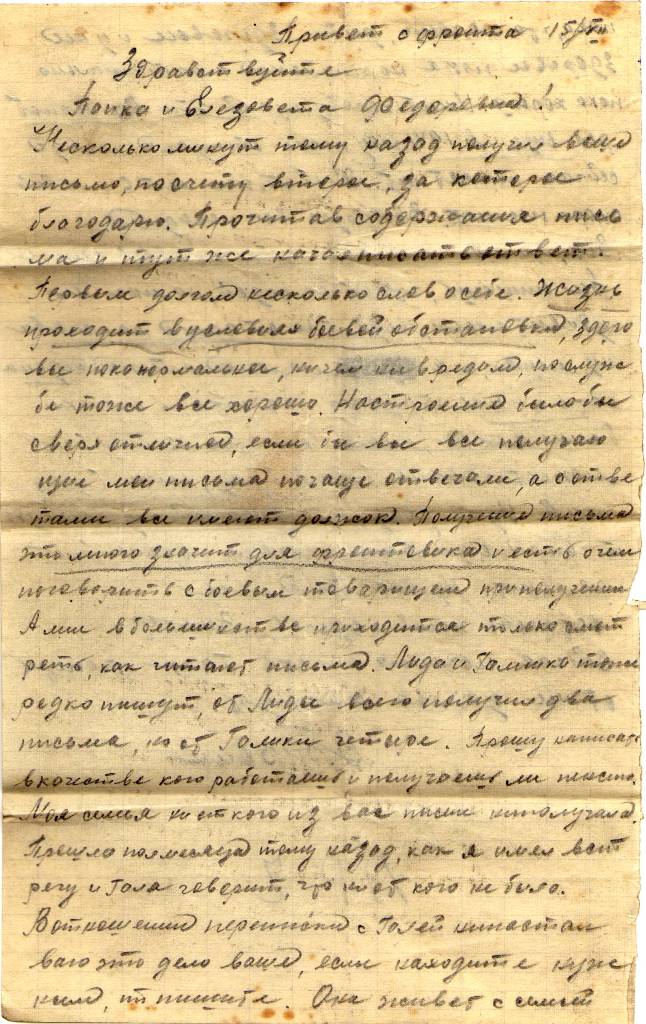 Привет с фронта 15/VII
Здравствуйте
Панка и Елезовета Федоровна!
Несколько минут тому назад получил ваше
письмо, по счету второе, за которое
благодарю. Прочитав содержание пись
ма и тут же начал писать ответ.
Первым долгом несколько слов о себе. Жизнь
проходит в условиях боевой обстановки, здоро
вье пока нормальное, ничем не вредом, по служ
бе тоже все хорошо. Настроение было бы
сверх отличное, если бы вы все получаю
щие мои письма почаще отвечали, а с отве
тами все имеют должок. Получение письма
это много значит для фронтовика и есть о чем
поговорить с боевым товарищем при получении
А мне в большинстве приходится только смот
реть, как читают письма. Лида и Галинка тоже
редко пишут, от Лиды всего получил два
письма, но от Галики четыре. Прошу написать
в качестве кого работаешь и получаешь ли пенсию.
Моя семья ни от кого из вас писем не получала.
Прошло пол месяца тому назад, как я имел вст
речу и Галя говорит, что ни от кого не было.
В отношении переписки с Галей не настаи
ваю это дело ваше, если находите нуж
ным, то пишите. Она живет с семьей